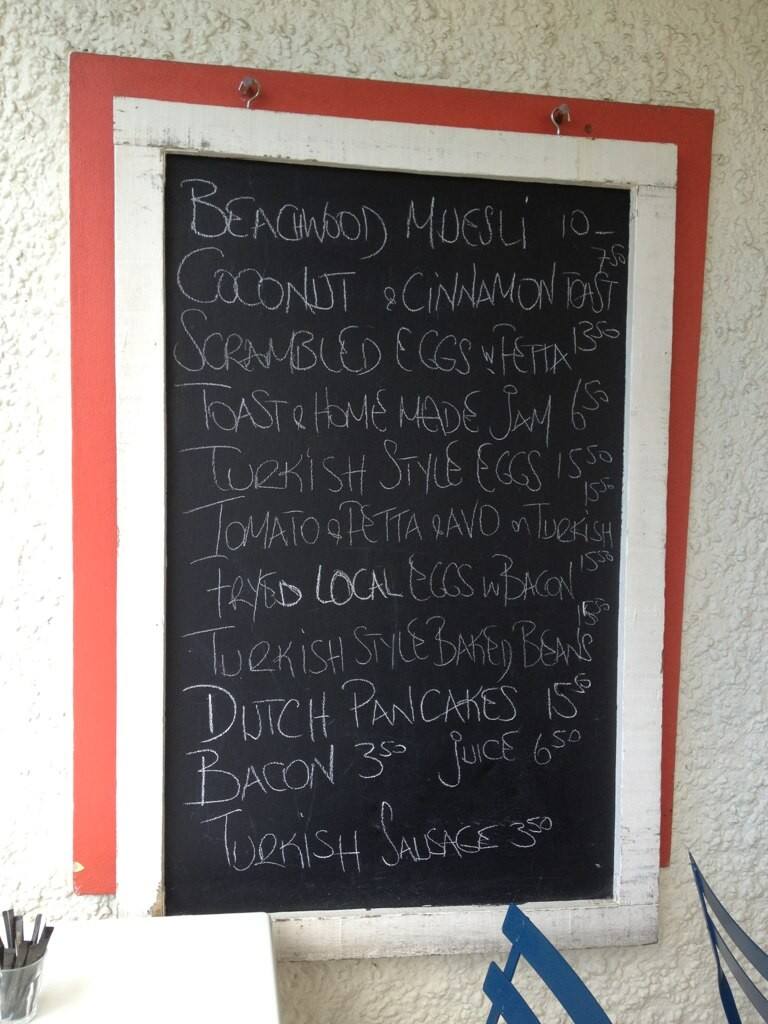 BEACHWOOD MUESLI 10-
7.50
COCONUT & CINNAMON TOAST
SCRAMBLED EGGS w FETTA 13.50
TOAST & HOME MADE JAM 6.50
TURKISH STYLE EGGS 15.50
15.50
TOMATO & FETTA & AVO on TURKISH
15.50
FRYED LOCAL EGGS w BACON
TURKISH STYLE BAKED BEANS
DUTCH PANCAKES 15
BACON 3.50 JUICE 6.50
TURKISH SAUSAGE 3.50